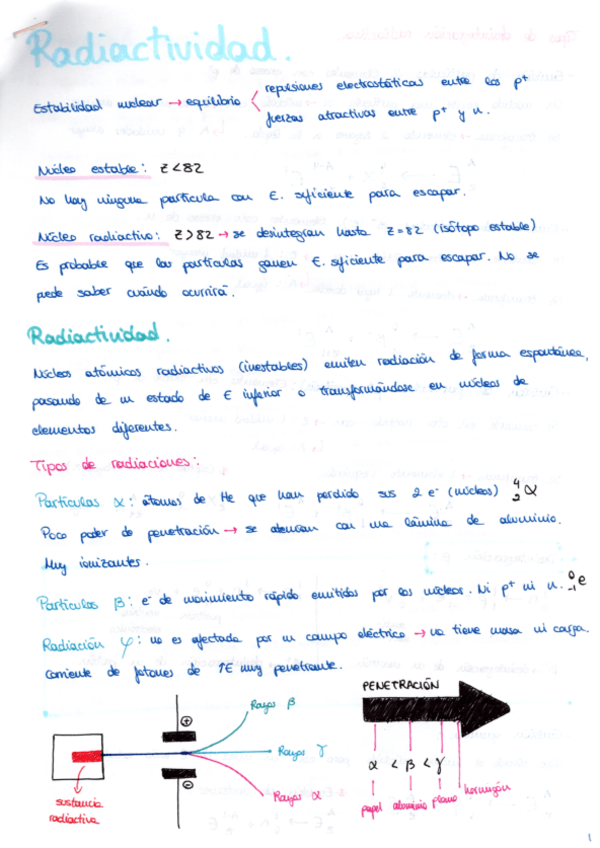 Radiactividad.
repulsiones electrostáticas entre los p+
Estabilidad nuclear → equilibrio <
fuerzas atractivas entre p+ y n.
Núcleo estable: Z<82
No hay ninguna partícula con E. suficiente para escapar.
Núcleo radiactivo: Z>82 → se desintegran hasta Z=82 (isótopo estable)
Es probable que las partículas ganen E. suficiente para escapar. No se
puede saber cuándo ocurrirá.
Radiactividad.
Núcleos atómicos radiactivos (inestables) emiten radiación de forma espontánea,
pasando de un estado de E inferior o transformándose en núcleos de
elementos diferentes.
Tipos de radiaciones:
Partículas α: átomos de He que han perdido sus 2 e- (núcleos) ⁴₂α
Poco poder de penetración → se atenúan con una lámina de aluminio.
Muy ionizantes.
Partículas β: e- de movimiento rápido emitidos por los núcleos. Ni p+ ni n. ⁰₋₁e
Radiación γ: no es afectada por un campo eléctrico → no tiene masa ni carga.
Corriente de fotones de ↑E muy penetrante.
PENETRACIÓN
Rayos β
+
Rayos γ
α < β < γ
-
Rayos α
hormigón
papel aluminio plomo
sustancia
radiactiva
1